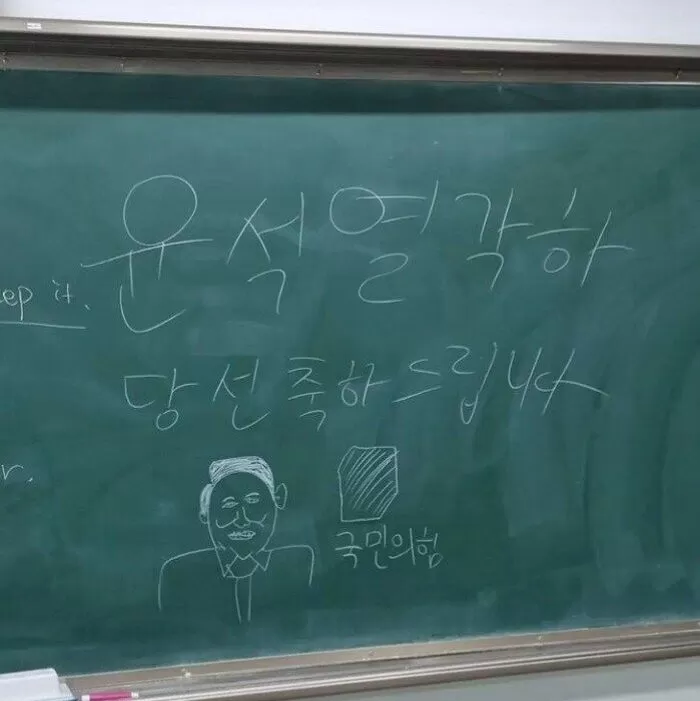 윤석열각하
ep it.
당선축하드립니다
r.
국민의힘